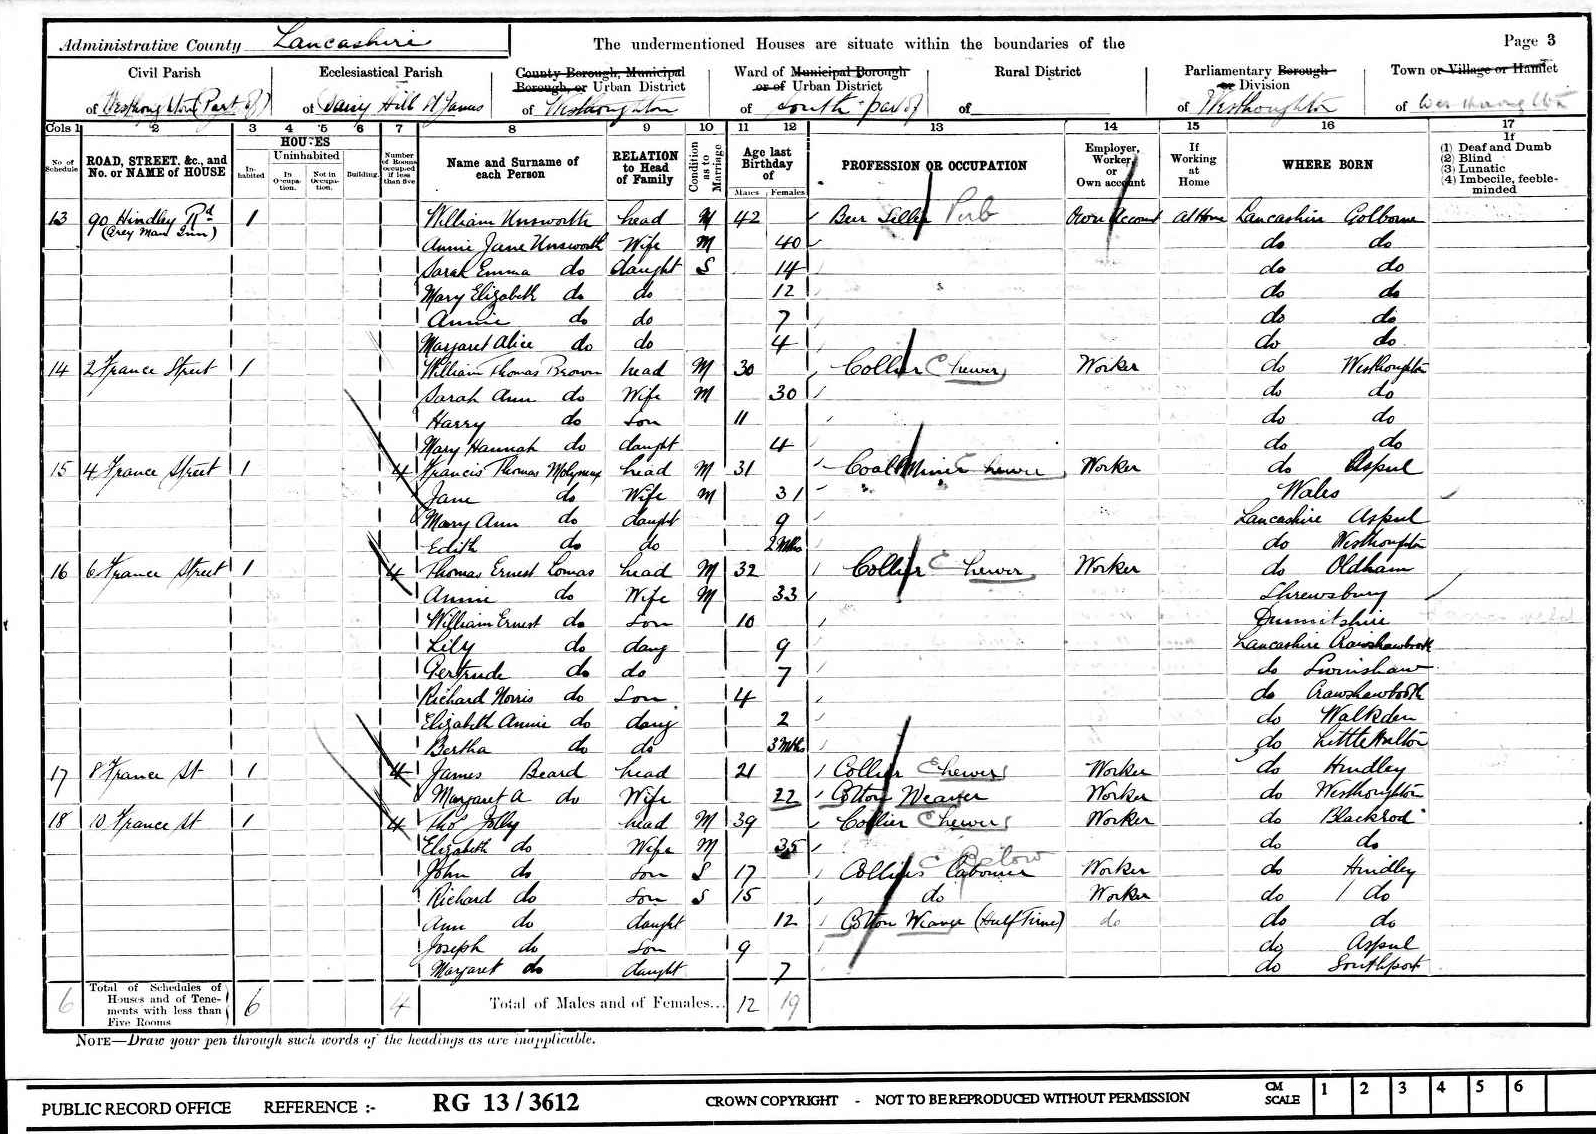 Administrative County Lancashire
The undermentioned Houses are situate within the boundaries of the
Page 3
Civil Parish
of Westhoughton (Part of)
Ecclesiastical Parish
of Daisy Hill St James
County Borough, Municipal Borough, or Urban District
of Westhoughton
Ward of Municipal Borough or of Urban District
of South - part of
Rural District
of
Parliamentary Borough or Division
of Westhoughton
Town or Village or Hamlet
of Westhoughton
Cols 1 2 3 4 5 6 7 8 9 10 11 12 13 14 15 16 17
No of Schedule
ROAD, STREET, &c., and No. or NAME of HOUSE
HOUSES
Inhabited
Uninhabited
In Occupation.
Not in Occupation.
Building.
Number of Rooms occupied if less than five
Name and Surname of each Person
RELATION to Head of Family
Condition as to Marriage
Age last Birthday of
Males Females
PROFESSION OR OCCUPATION
Employer, Worker, or Own account
If Working at Home
WHERE BORN
If
(1) Deaf and Dumb
(2) Blind
(3) Lunatic
(4) Imbecile, feeble-minded
13 90 Hindley Rd 1 William Unsworth head M 42 Beer Seller Pub Own Account At Home Lancashire Golborne
(Grey Man Inn)
Annie Jane Unsworth Wife M 40 do do
Sarah Emma do daught S 14 do do
Mary Elizabeth do do 12 do do
Annie do do 7 do do
Margaret Alice do do 4 do do
14 2 France Street 1 William Thomas Brown head M 30 Collier C hewer Worker do Westhoughton
Sarah Ann do Wife M 30 do do
Harry do Son 11 do do
Mary Hannah do daught 4 do do
15 4 France Street 1 4 Francis Thomas Molyneux head M 31 Coal Miner hewer Worker do Aspul
Jane do Wife M 31 Wales
Mary Ann do daught 9 Lancashire Aspul
Edith do do 2 Mths do Westhoughton
16 6 France Street 1 4 Thomas Ernest Lomas head M 32 Collier C hewer Worker do Oldham
Annie do Wife M 33 Shrewsbury
William Ernest do Son 10
Lily do daug 9 Lancashire Crawshawbooth
Gertrude do do 7 do Lwinshaw
Richard Norris do Son 4 do Crawshawbooth
Elizabeth Annie do daug 2 do Walkden
Bertha do do 3 Mths do Little Hulton
17 8 France St 1 4 James Beard head 21 Collier C hewer Worker do Hindley
Margaret A do Wife 22 Cotton Weaver Worker do Westhoughton
18 10 France St 1 4 Thos Jolly head M 39 Collier C hewer Worker do Blackrod
Elizabeth do Wife M 35 do do
John do Son S 17 Colliers C Labourer below Worker do Hindley
Richard do Son S 15 do Worker do do
Ann do daught 12 Cotton Weaver (Half Time) do do do
Joseph do Son 9 do Aspul
Margaret do daught 7 do Southport
6 Total of Schedules of Houses and of Tenements with less than Five Rooms 6 4 Total of Males and of Females... 12 19
NOTE—Draw your pen through such words of the headings as are inapplicable.
PUBLIC RECORD OFFICE REFERENCE :- RG 13 / 3612 CROWN COPYRIGHT - NOT TO BE REPRODUCED WITHOUT PERMISSION CM SCALE 1 2 3 4 5 6